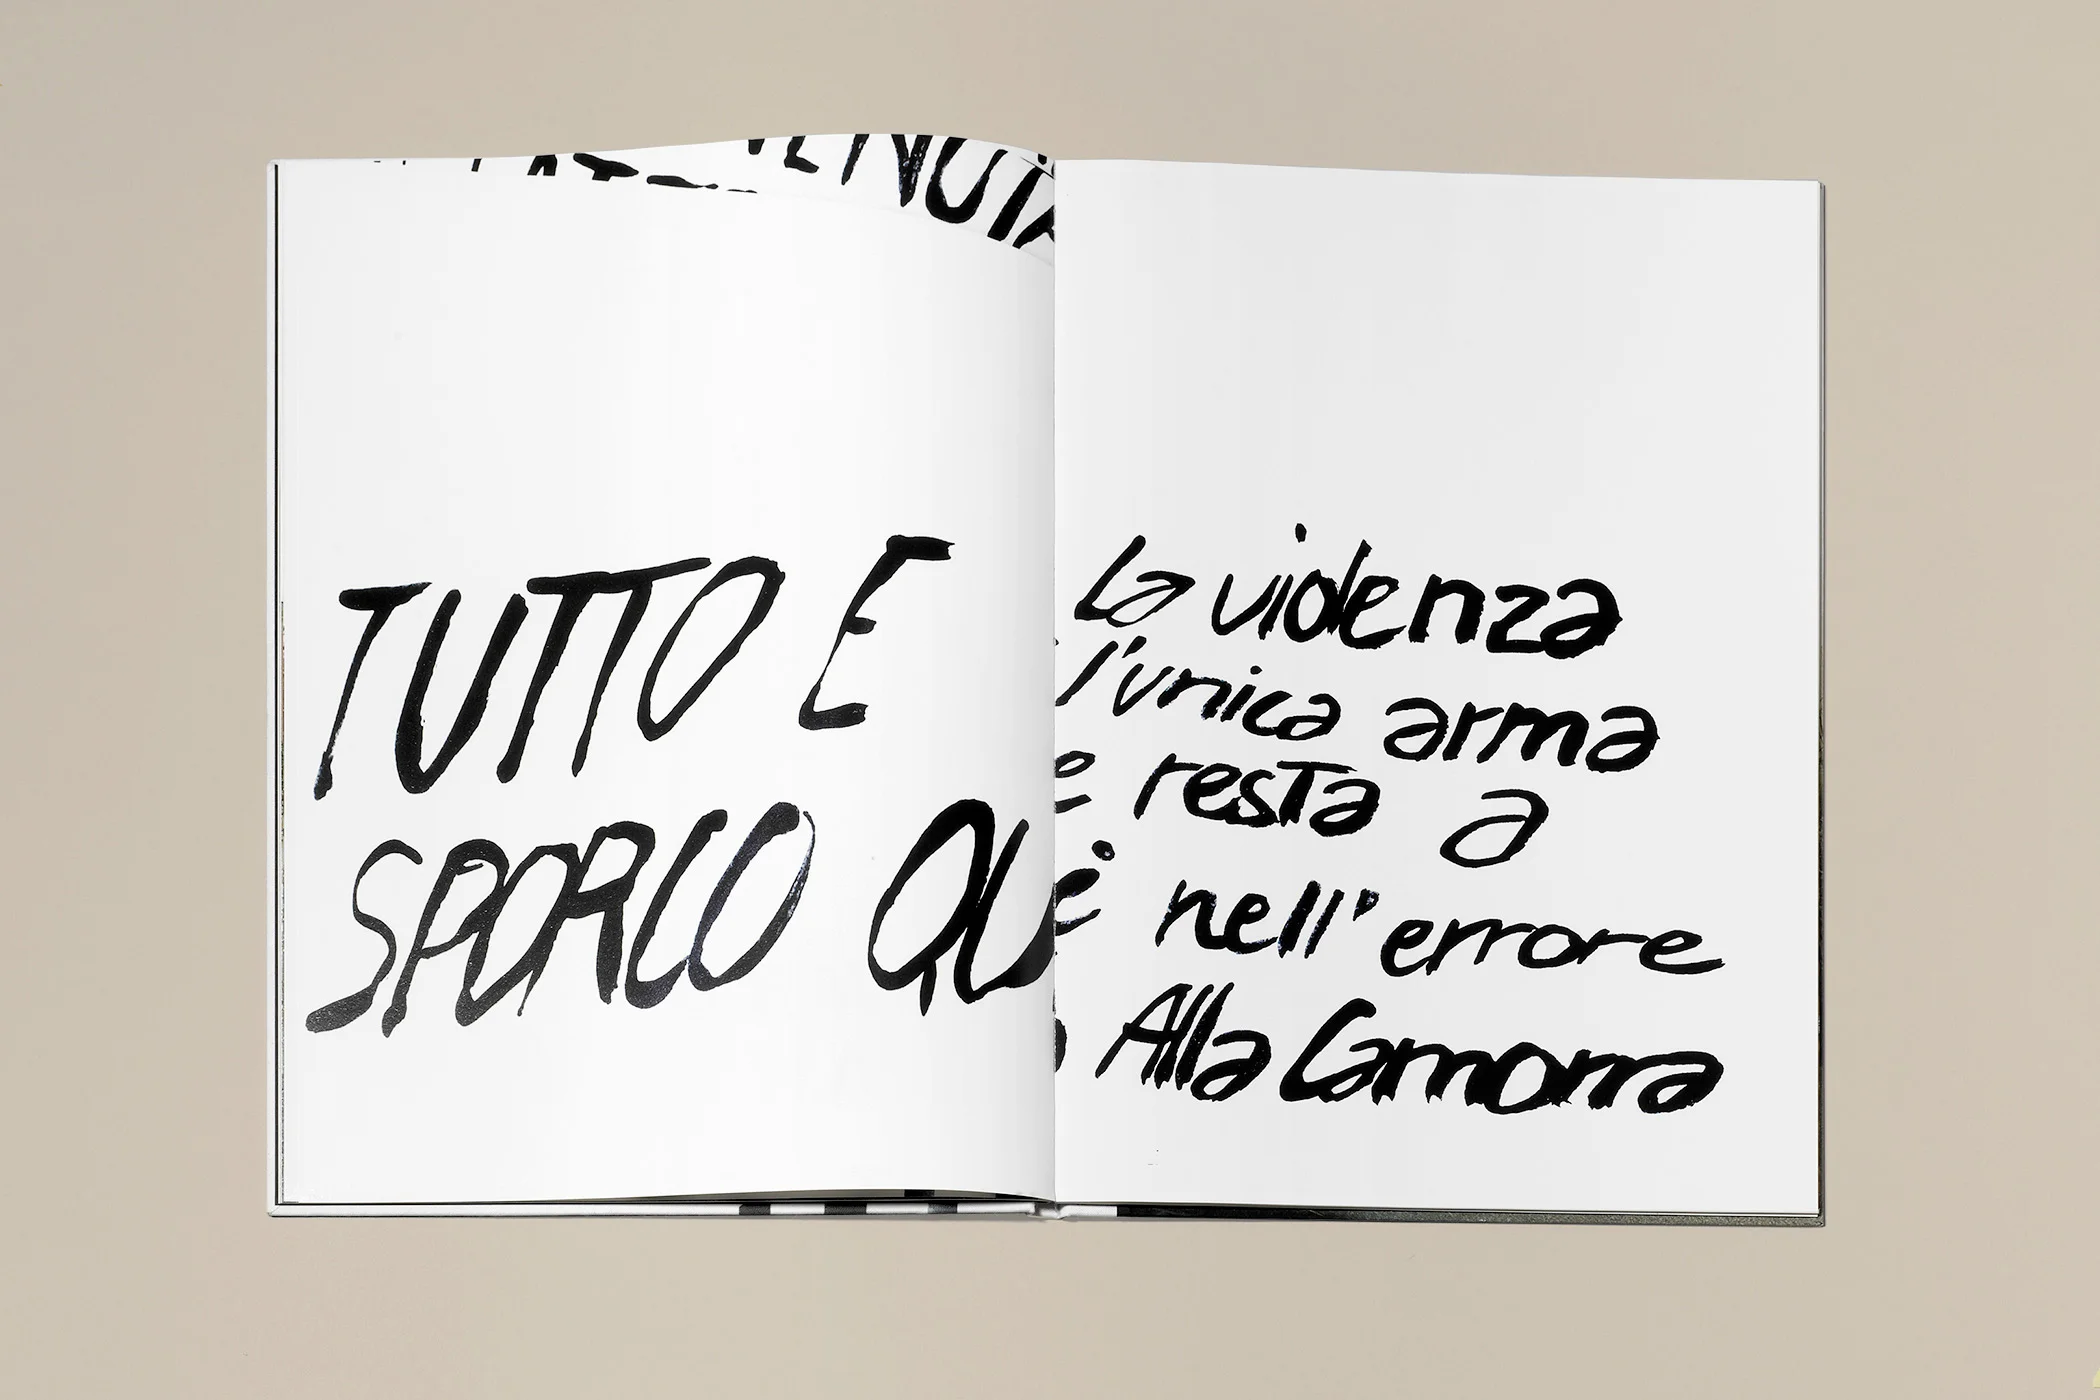 TUTTO E
SPORCO QU
La violenza
l'unica arma
e resta a
è nell'errore
Alla Camorra